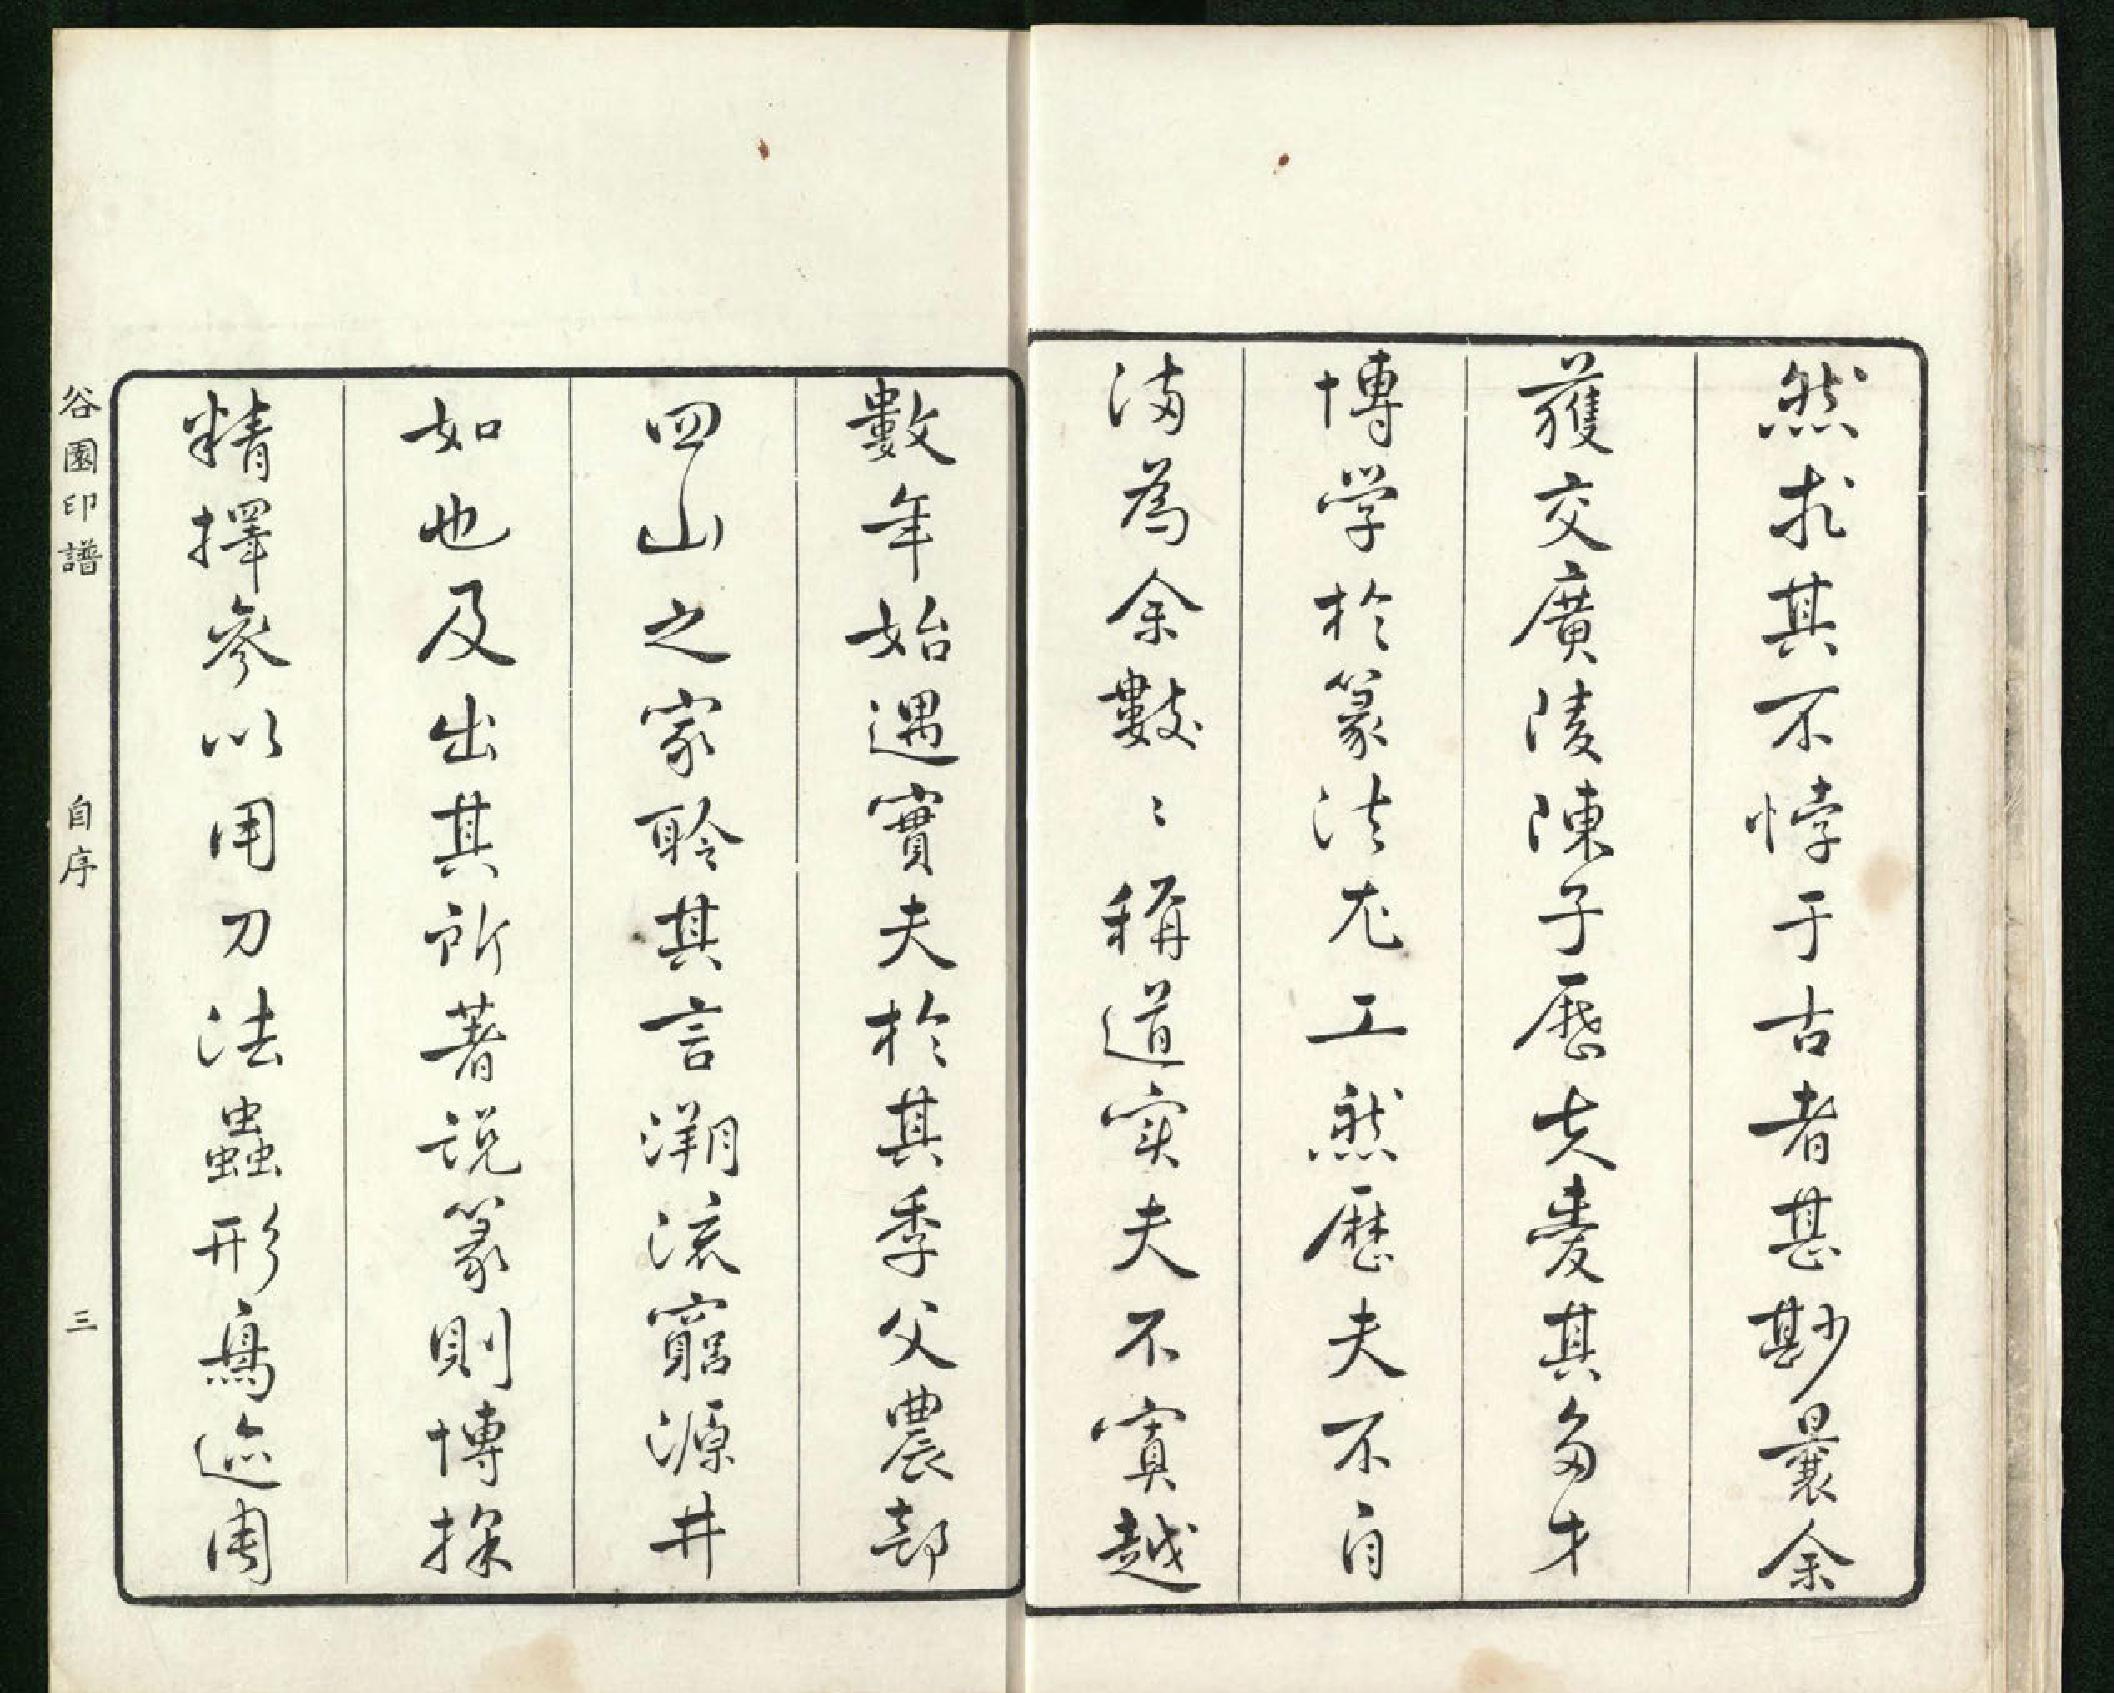 然求其不悖于古者甚尠曩余
獲交廣陵陳子歷夫愛其多才
博学於篆法尤工然歷夫不自
满為余數〻稱道实夫不寘越
數年始遇實夫於其季父農部
四山之家聆其言溯流窮源井
如也及出其所著说篆則博採
精擇參以用刀法蟲形鳥迹周
谷園印譜
自序
三